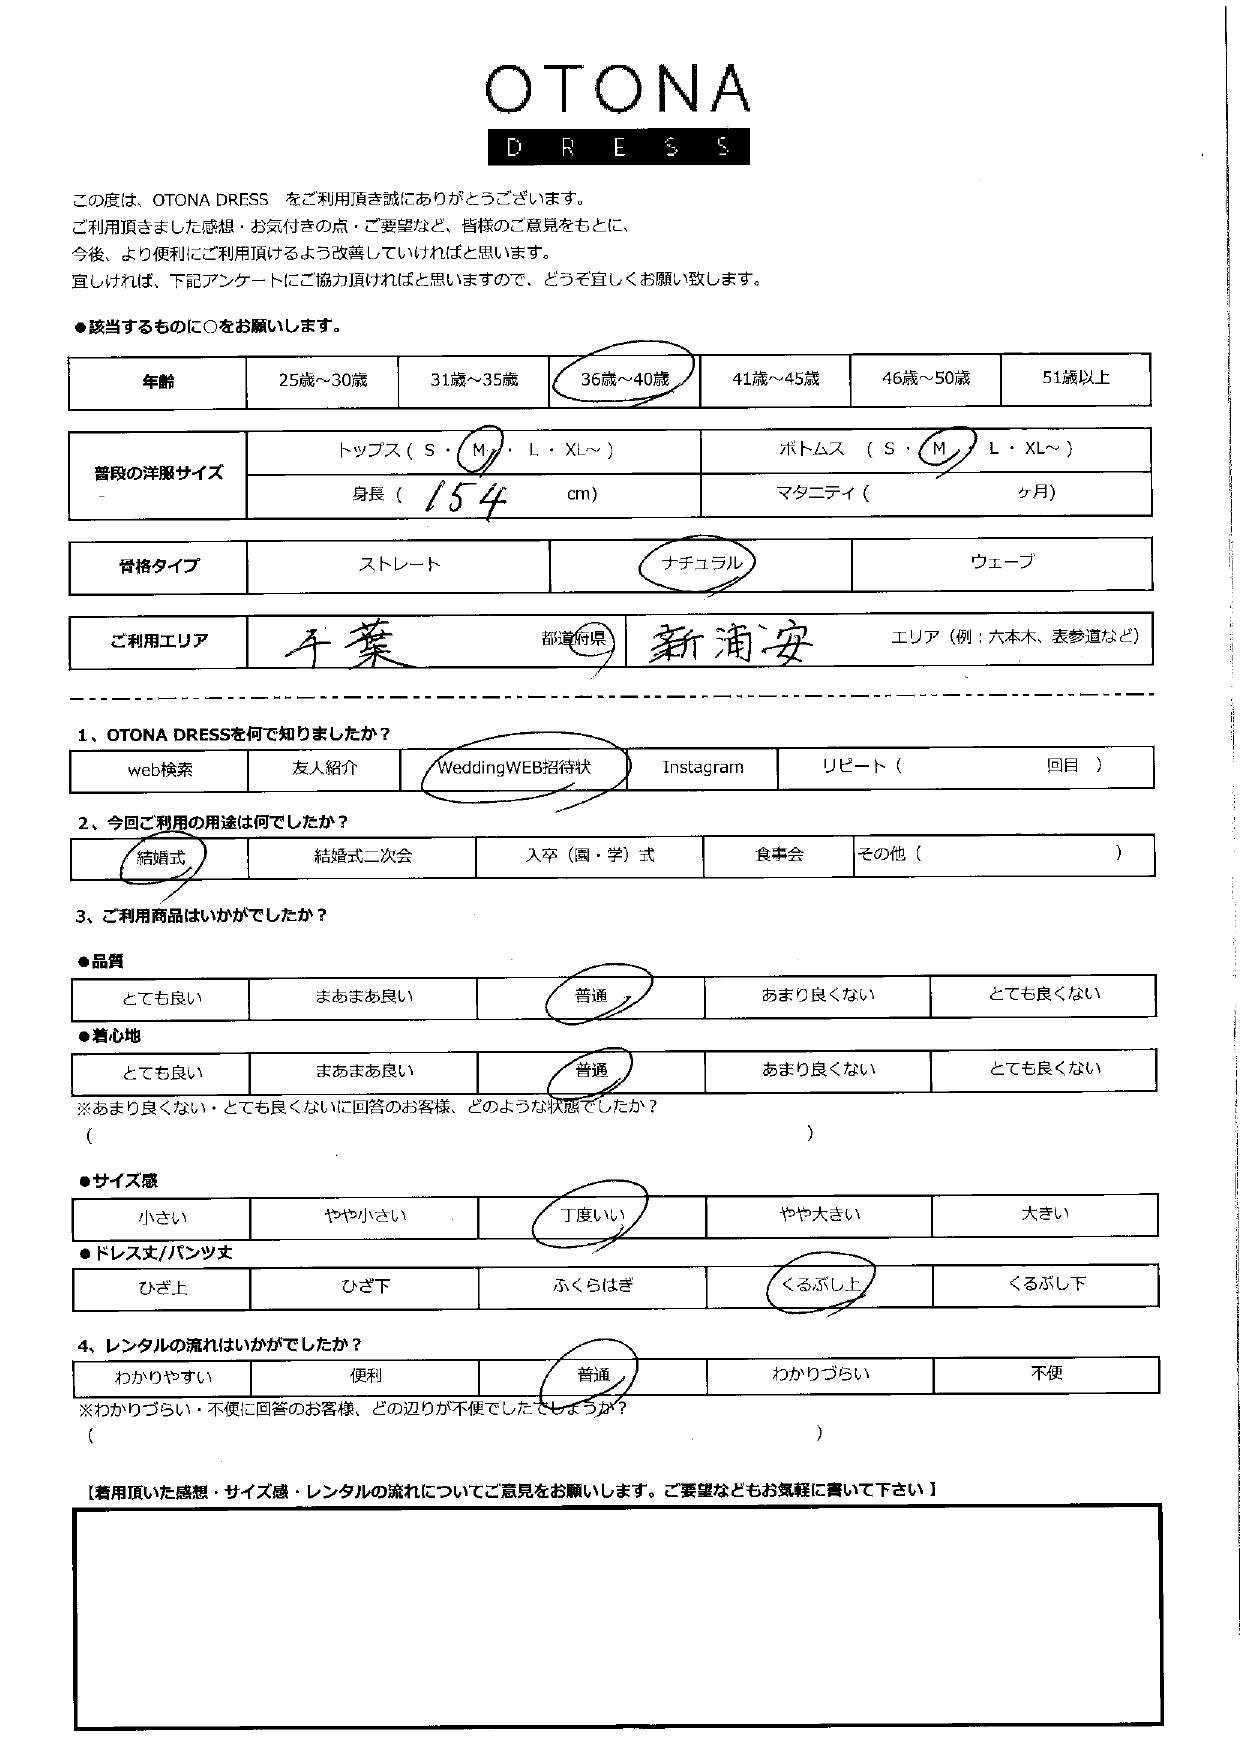 OTONA
DRESS
この度は、OTONA DRESS をご利用頂き誠にありがとうございます。
ご利用頂きました感想・お気付きの点・ご要望など、皆様のご意見をもとに、
今後、より便利にご利用頂けるよう改善していければと思います。
宜しければ、下記アンケートにご協力頂ければと思いますので、どうぞ宜しくお願い致します。
●該当するものに○をお願いします。
年齢 25歳～30歳 31歳～35歳 36歳～40歳 41歳～45歳 46歳～50歳 51歳以上
普段の洋服サイズ
トップス ( S ・ M ・ L ・ XL～ ) ボトムス ( S ・ M ・ L ・ XL～ )
身長 ( 154 cm) マタニティ ( ヶ月)
骨格タイプ ストレート ナチュラル ウェーブ
ご利用エリア 千葉 都道府県 新浦安 エリア（例：六本木、表参道など）
1、OTONA DRESSを何で知りましたか？
web検索 友人紹介 WeddingWEB招待状 Instagram リピート ( 回目 )
2、今回ご利用の用途は何でしたか？
結婚式 結婚式二次会 入卒（園・学）式 食事会 その他 ( )
3、ご利用商品はいかがでしたか？
●品質
とても良い まあまあ良い 普通 あまり良くない とても良くない
●着心地
とても良い まあまあ良い 普通 あまり良くない とても良くない
※あまり良くない・とても良くないに回答のお客様、どのような状態でしたか？
( )
●サイズ感
小さい やや小さい 丁度いい やや大きい 大きい
●ドレス丈/パンツ丈
ひざ上 ひざ下 ふくらはぎ くるぶし上 くるぶし下
4、レンタルの流れはいかがでしたか？
わかりやすい 便利 普通 わかりづらい 不便
※わかりづらい・不便に回答のお客様、どの辺りが不便でしたでしょうか？
( )
【着用頂いた感想・サイズ感・レンタルの流れについてご意見をお願いします。ご要望などもお気軽に書いて下さい】